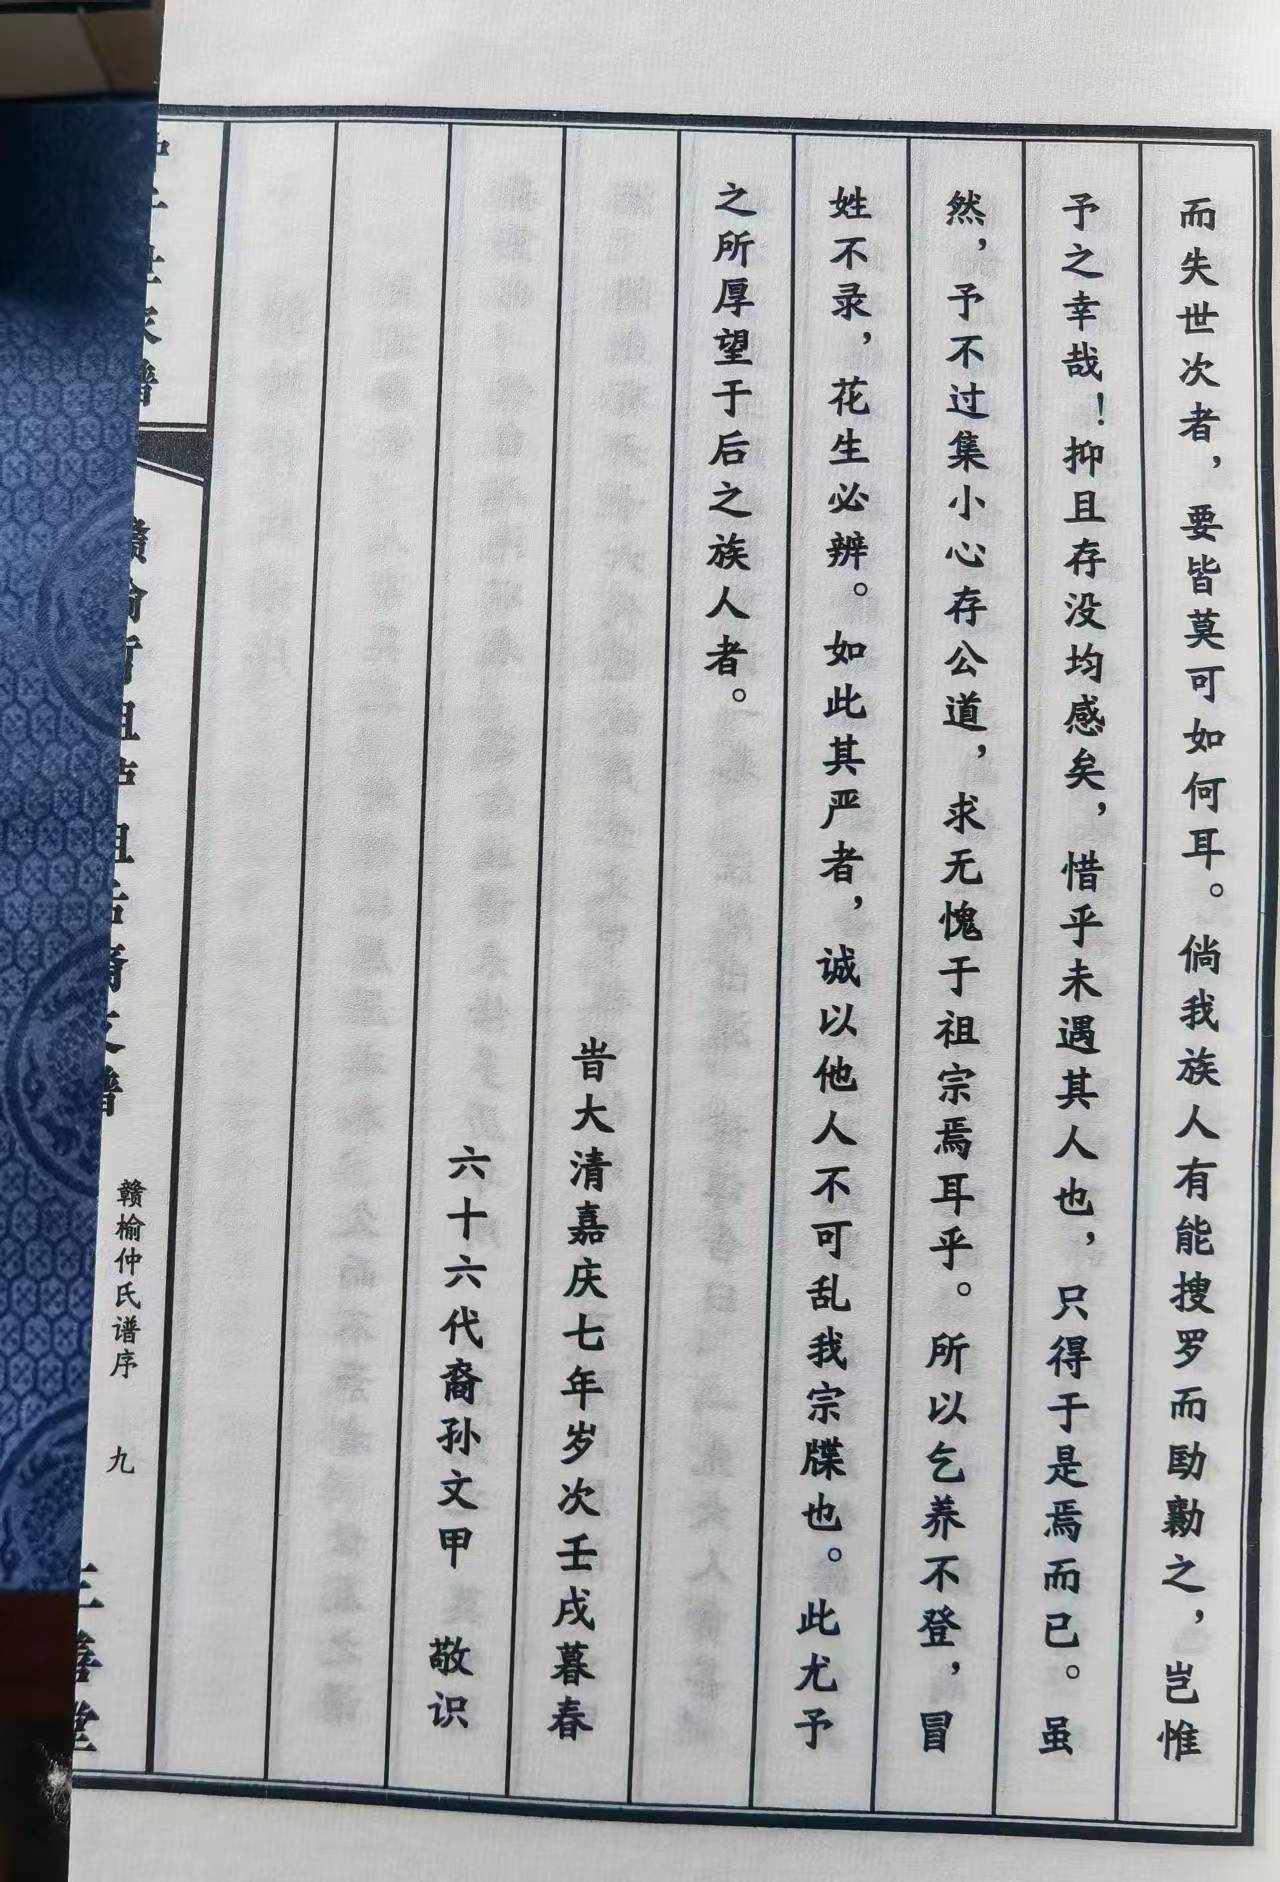 而失世次者，要皆莫可如何耳。倘我族人有能搜罗而劻勷之，岂惟
予之幸哉！抑且存没均感矣，惜乎未遇其人也，只得于是焉而已。虽
然，予不过集小心存公道，求无愧于祖宗焉耳乎。所以乞养不登，冒
姓不录，花生必辨。如此其严者，诚以他人不可乱我宗牒也。此尤予
之所厚望于后之族人者。
旹大清嘉庆七年岁次壬戌暮春
六十六代裔孙文甲 敬识
赣榆仲氏谱序 九
三善堂